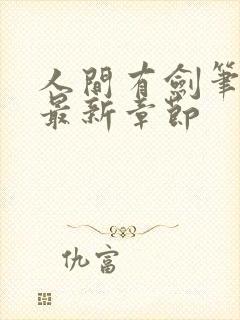 人間有劍筆
最新章節
仇富